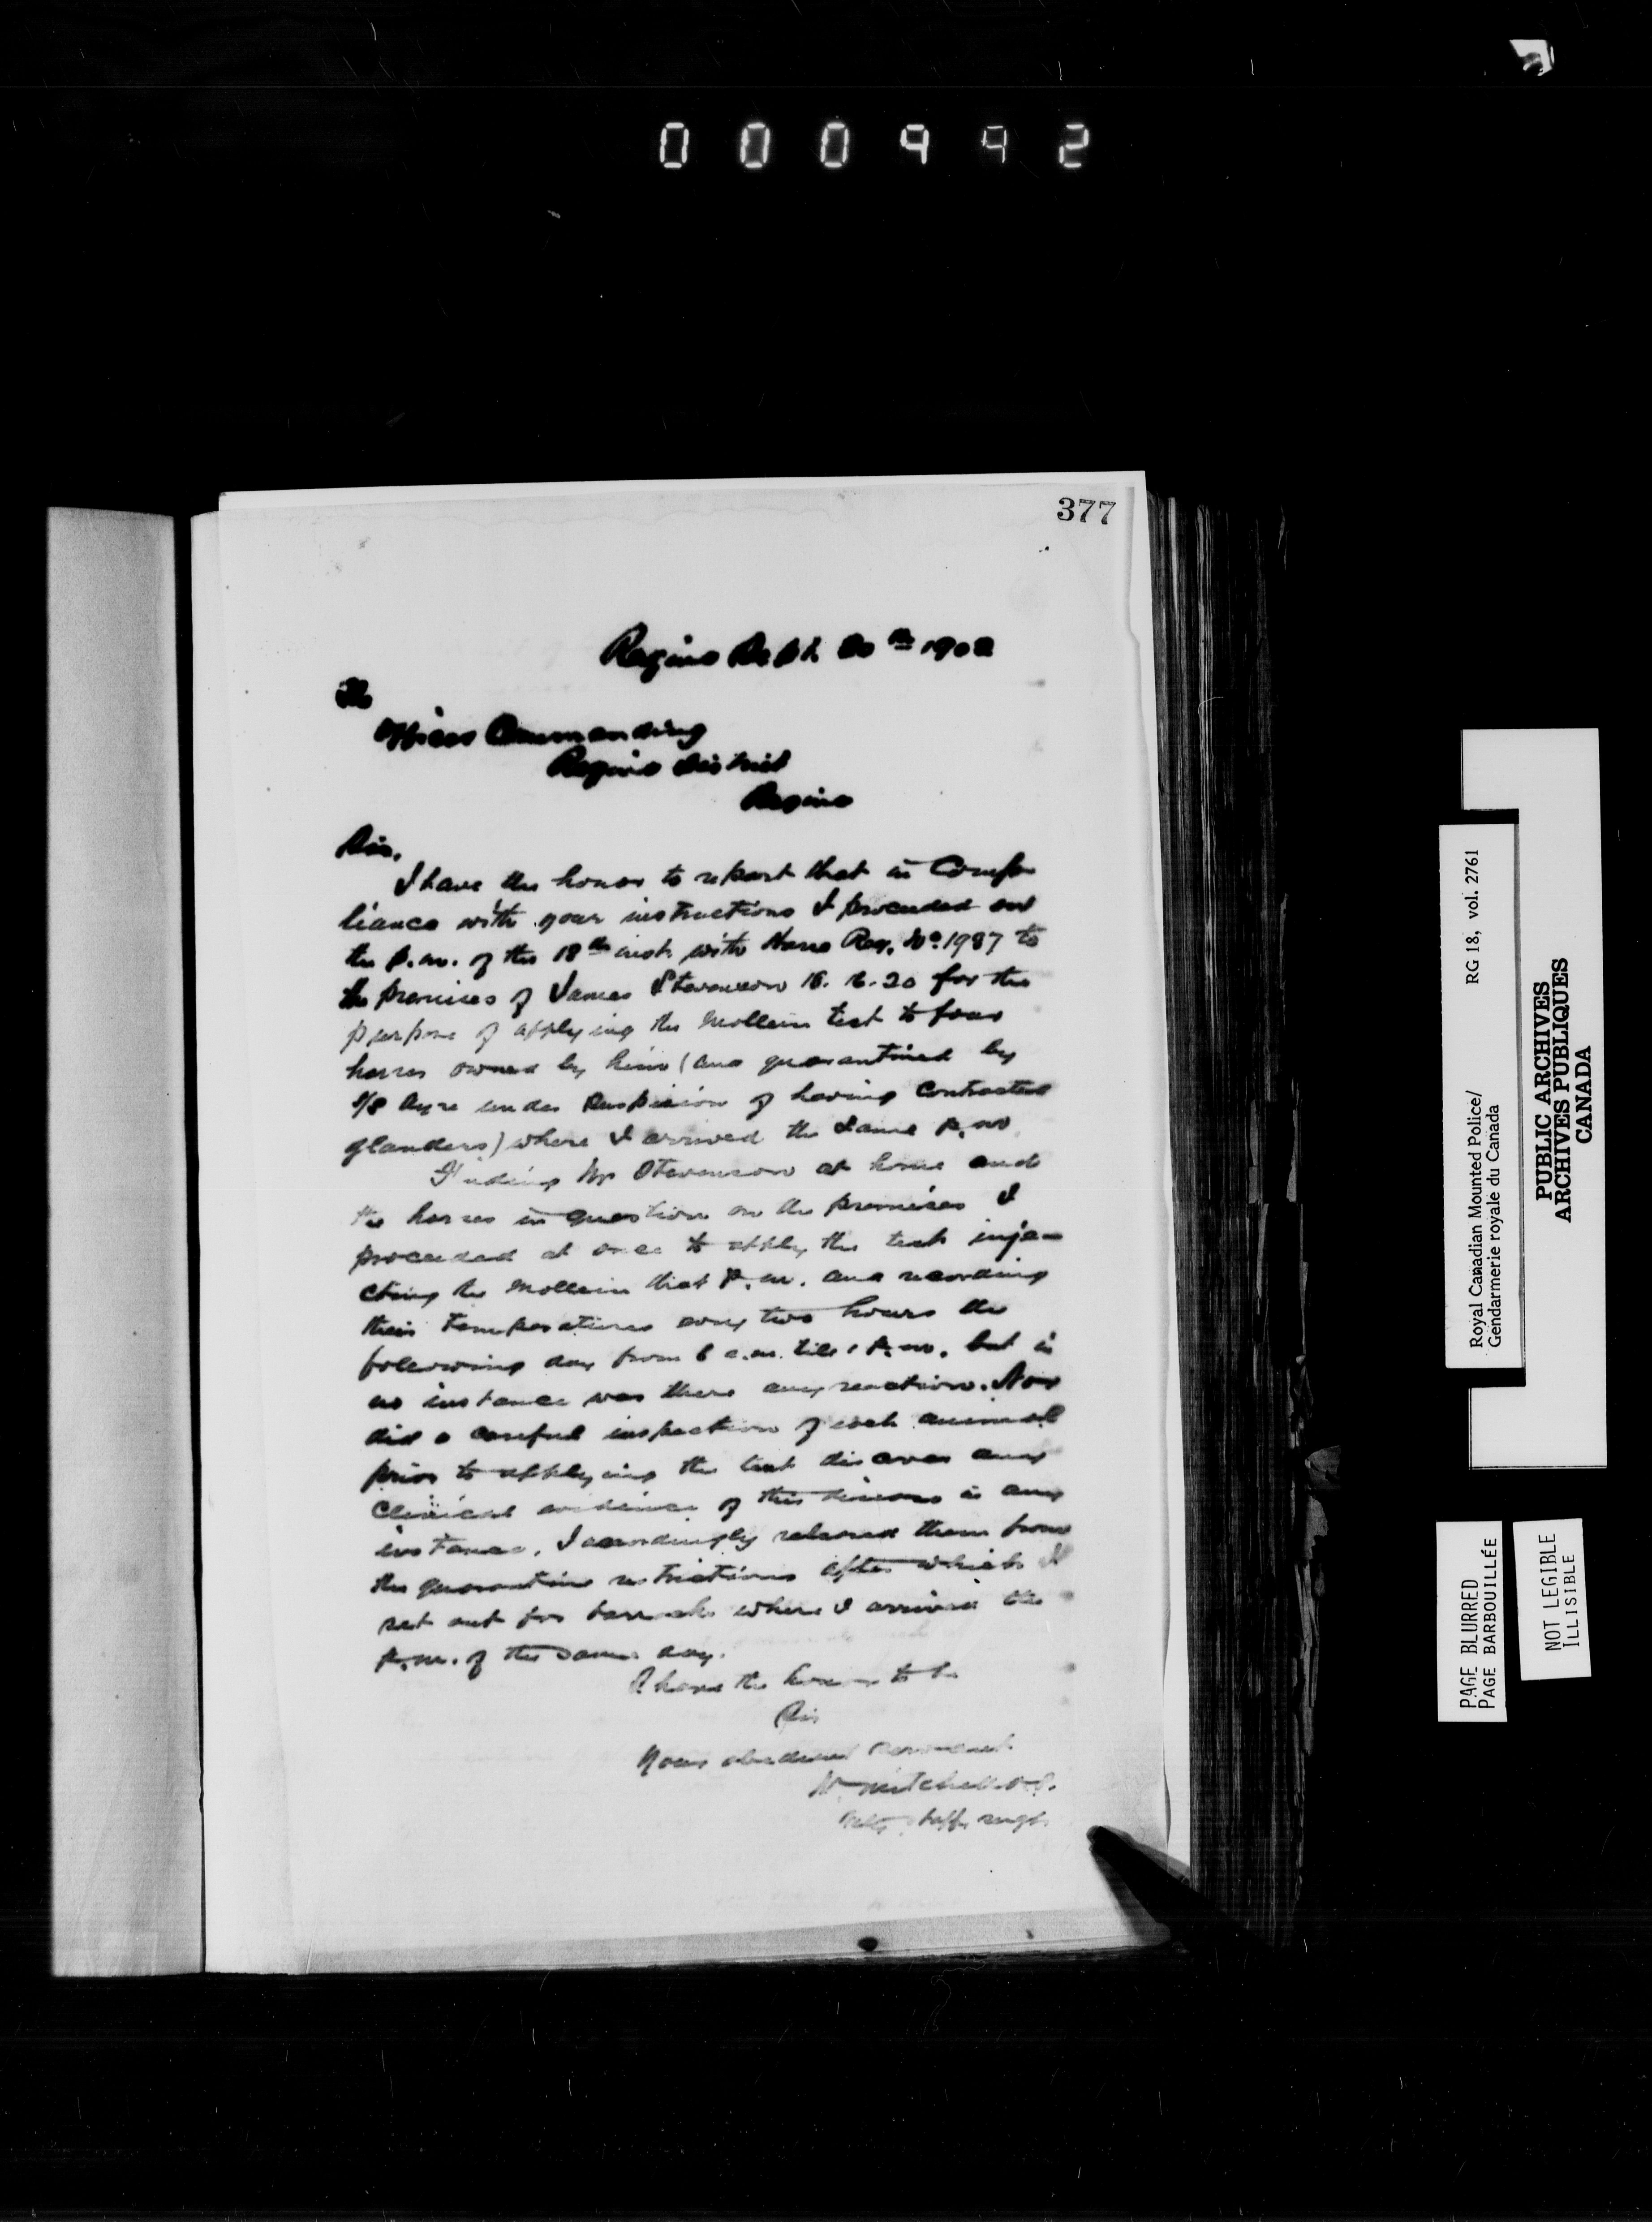 000992
377
Regina Sept. 20th 1902
The
Officer Commanding
Regina District
Regina
Sir,
I have the honor to report that in Comp
liance with your instructions I proceeded on
the p.m. of the 18th inst. with Horse Reg. No. 1987 to
the premises of James Stevenson 16. 16. 20 for the
purpose of applying the Mallein test to four
horses owned by him (and quarantined by
S/S Ayre under suspicion of having contracted
glanders) where I arrived the same p.m.
Finding Mr Stevenson at home and
the horses in question on the premises I
proceeded at once to apply the test inje-
cting the Mallein that p.m. and recording
their temperatures every two hours the
following day from 6 a.m. till p.m. but in
no instance was there any reaction. Nor
did a careful inspection of each animal
prior to applying the test discover any
clinical evidence of this disease in any
instance. I accordingly released them from
the quarantine restrictions after which I
set out for barracks where I arrived the
p.m. of the same day.
I have the honor to be
Sir
Your obedient servant
Mitchell V.S.
Vety. Staff. Sergt.
Royal Canadian Mounted Police/ RG 18, vol. 2761
Gendarmerie royale du Canada
PUBLIC ARCHIVES
ARCHIVES PUBLIQUES
CANADA
PAGE BLURRED
PAGE BARBOUILLÉE
NOT LEGIBLE
ILLISIBLE